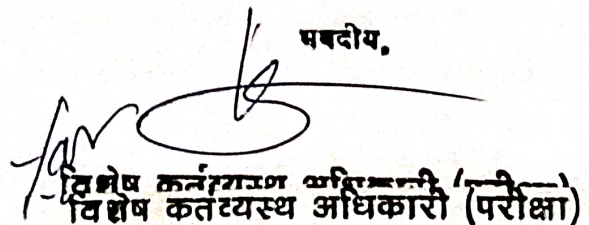 भवदीय,
विशेष कर्तव्यस्थ अधिकारी
विशेष कर्तव्यस्थ अधिकारी (परीक्षा)